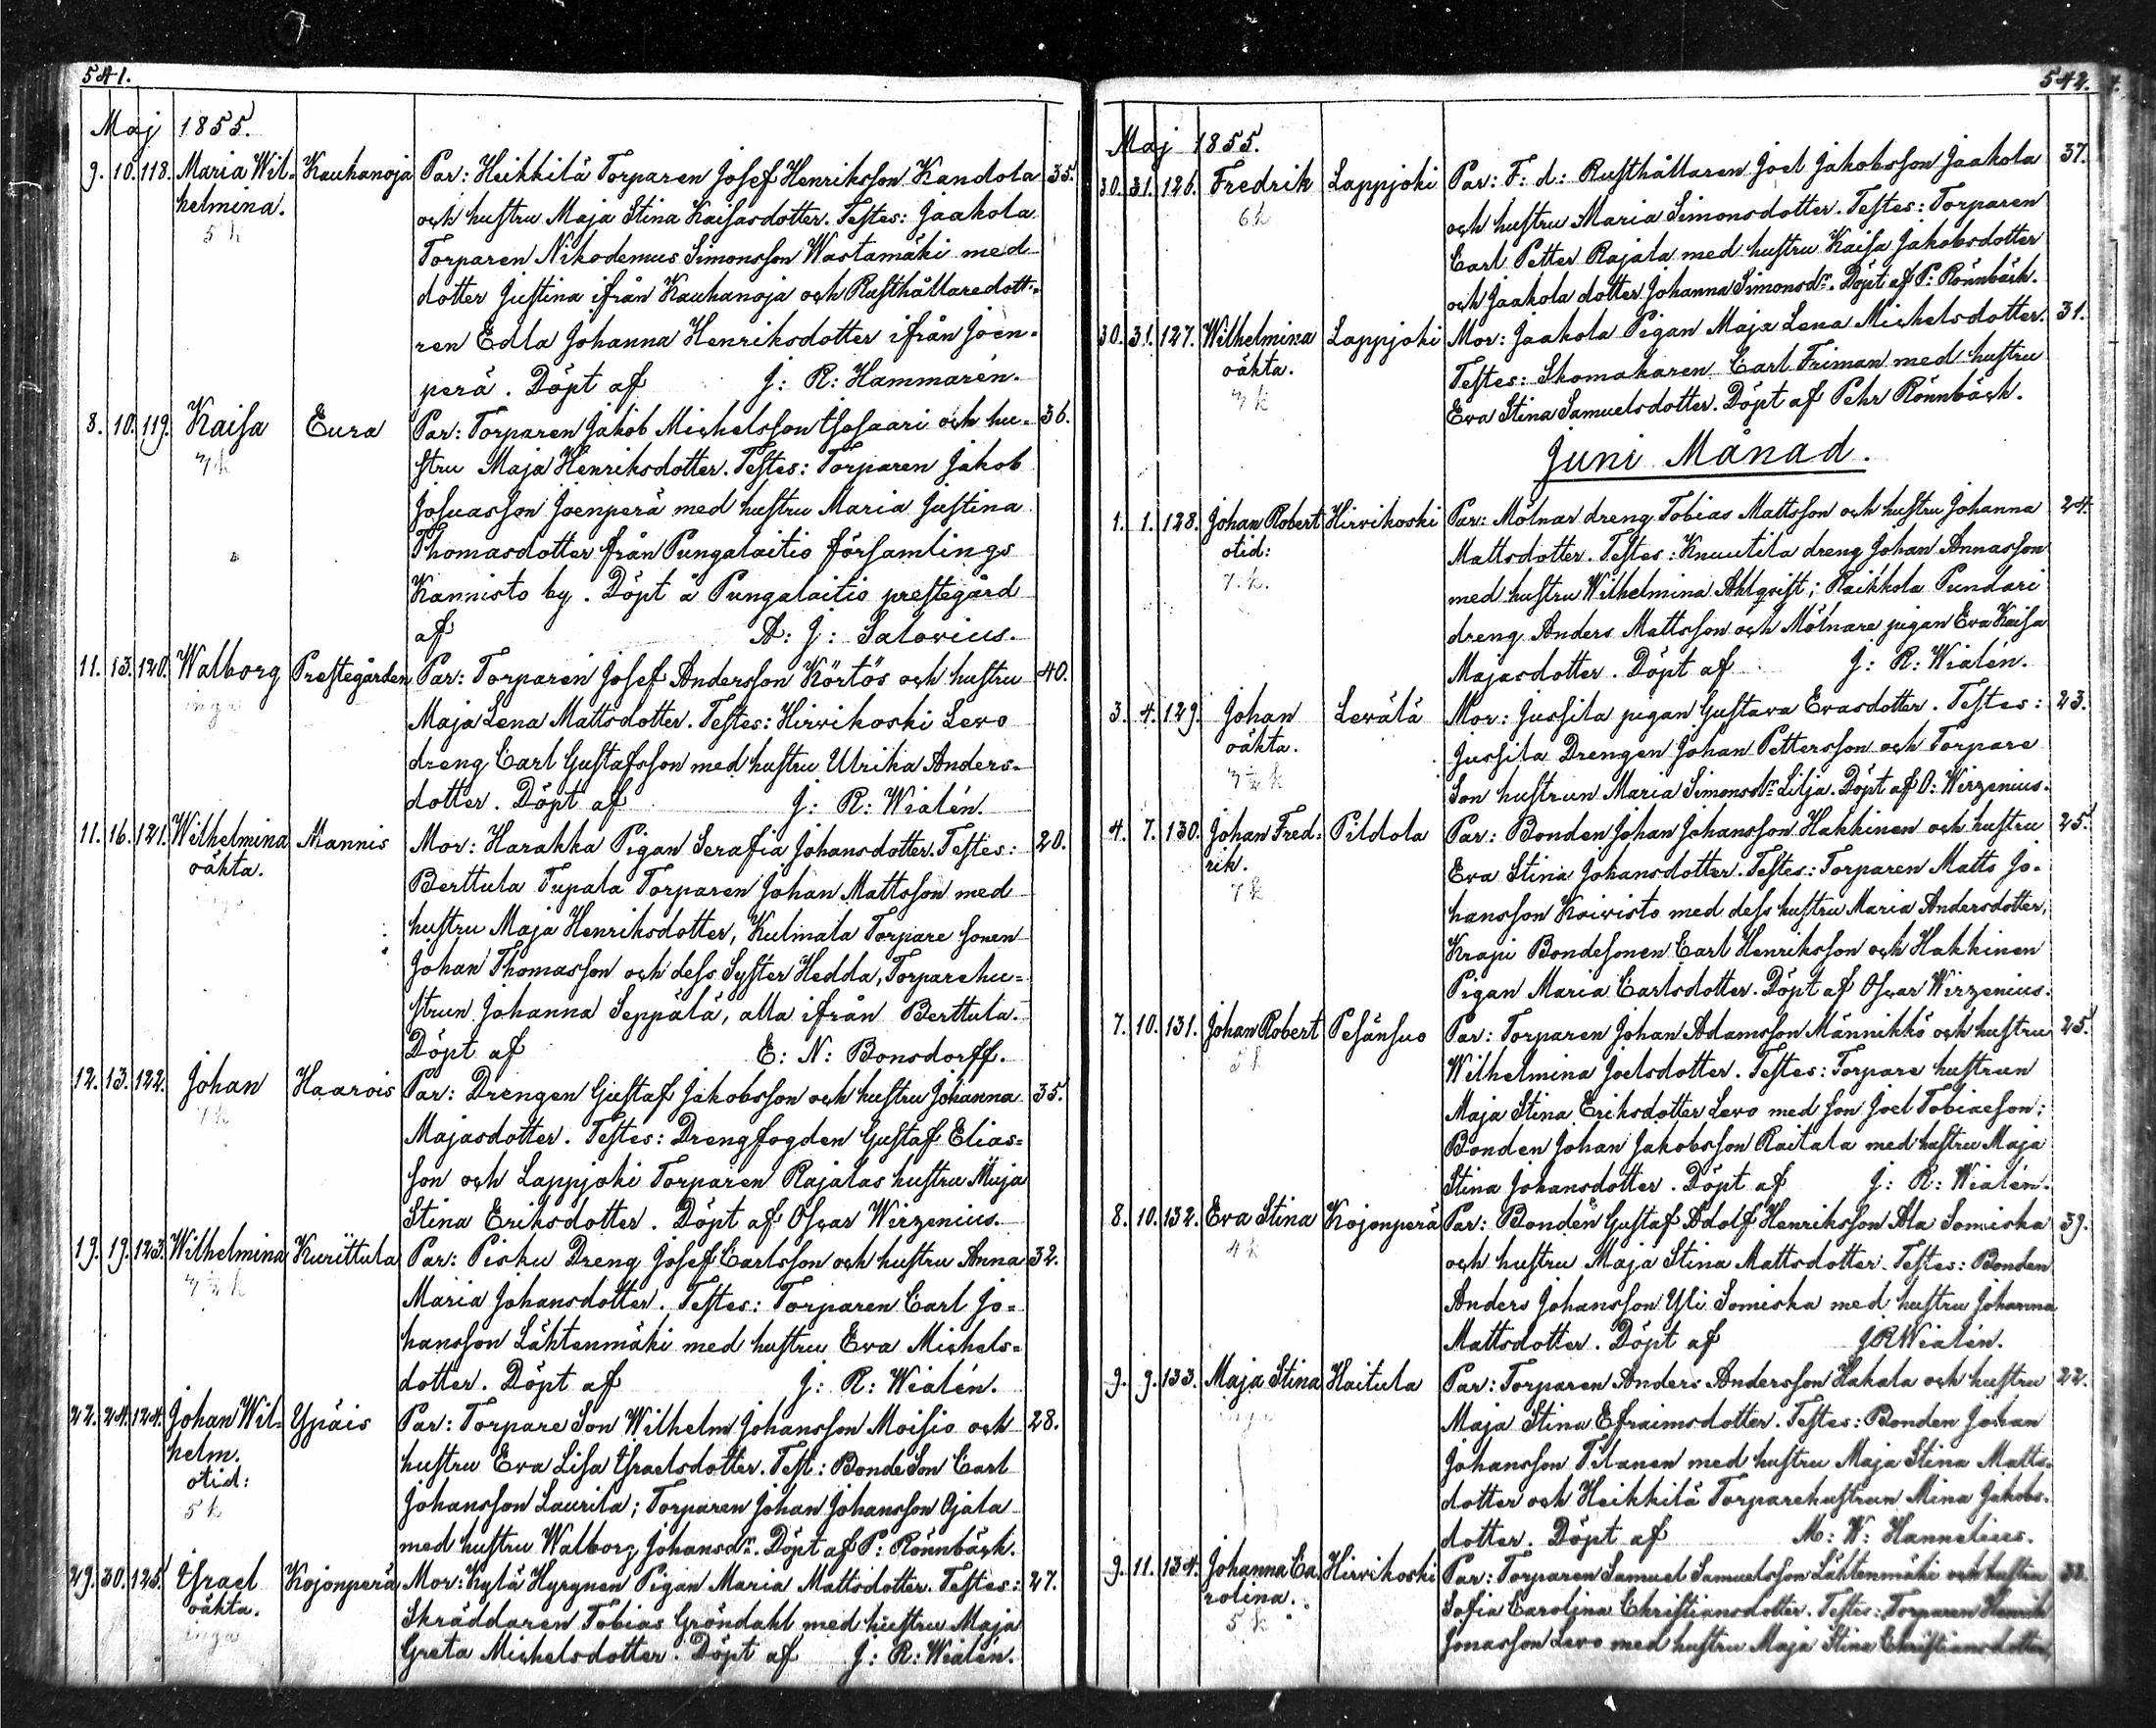 541.
Maj 1855.
9. 10. 118. Maria Wil- Kauhanoja Par: Heikkilä Torparen Josef Henriksson Kandola 35.
helmina. och hustru Maja Stina Kaisasdotter. Testes: Jaakola
5 k Torparen Nikodemus Simonsson Wastamäki med
dotter Justina ifrån Kauhanoja och Rusthållaredott-
ren Edla Johanna Henriksdotter ifrån Joen-
perä. Döpt af J: R: Hammarén.
8. 10. 119. Kaisa Eura Par: Torparen Jakob Michelsson Isosaari och hu- 36.
7 k stru Maja Henriksdotter. Testes: Torparen Jakob
Josuasson Joenperä med hustru Maria Justina
Thomasdotter från Pungalaitio församlings
Kannisto by. Döpt å Pungalaitio prestegård
af A: J: Salovius.
11. 13. 120. Walborg Prestegården Par: Torparen Josef Andersson Körtös och hustru 40.
inga Maja Lena Mattsdotter. Testes: Hirvikoski Levo
dreng Carl Gustafsson med hustru Ulrika Anders-
dotter. Döpt af J: R: Wialén.
11. 16. 121. Wilhelmina Mannis Mor: Harakka Pigan Serafia Johansdotter. Testes: 20.
oäkta. Berttula Tupala Torparen Johan Mattsson med
inga hustru Maja Henriksdotter, Kulmala Torpare sonen
Johan Thomasson och dess Syster Hedda, Torparehu-
strun Johanna Seppälä, alla ifrån Berttula.
Döpt af E: N: Bonsdorff.
12. 13. 122. Johan Haarois Par: Drengen Gustaf Jakobsson och hustru Johanna 35.
7 k Majasdotter. Testes: Drengfogden Gustaf Elias-
son och Lappjoki Torparen Rajalas hustru Maja
Stina Eriksdotter. Döpt af Oscar Wirzenius.
19. 19. 123. Wilhelmina Kurittula Par: Pisku Dreng Josef Carlsson och hustru Anna 32.
7 ½ k Maria Johansdotter. Testes: Torparen Carl Jo-
hansson Lähtenmäki med hustru Eva Michels-
dotter. Döpt af J: R: Wialén.
22. 24. 124. Johan Wil- Ypäis Par: Torpare Son Wilhelm Johansson Moisio och 28.
helm. hustru Eva Lisa Israelsdotter. Test: Bonde Son Carl
otid: Johansson Laurila; Torparen Johan Johansson Ojala
5 k med hustru Walborg Johansdr. Döpt af P: Rönnbäck.
29. 30. 125. Israel Kojonperä Mor: Kylä Hyrynen Pigan Maria Mattsdotter. Testes: 27.
oäkta. Skräddaren Tobias Gröndahl med hustru Maja
inga Greta Michelsdotter. Döpt af J: R: Wialén.
542.
Maj 1855.
30. 31. 126. Fredrik Lappjoki Par: F: d: Rusthållaren Joel Jakobsson Jaakola 37.
6 k och hustru Maria Simonsdotter. Testes: Torparen
Carl Petter Rajala med hustru Kaisa Jakobsdotter
och Jaakola dotter Johanna Simonsdr. Döpt af P: Rönnbäck.
30. 31. 127. Wilhelmina Lappjoki Mor: Jaakola Pigan Maja Lena Michelsdotter. 31.
oäkta. Testes: Skomakaren Carl Friman med hustru
7 k Eva Stina Samuelsdotter. Döpt af Pehr Rönnbäck.
Juni Månad.
1. 1. 128. Johan Robert Hirvikoski Par: Mölnar dreng Tobias Mattsson och hustru Johanna 24.
otid: Mattsdotter. Testes: Knuutila dreng Johan Annasson
7. k. med hustru Wilhelmina Ahlqvist; Raikkola Pundari
dreng Anders Mattsson och Mölnare pigan Eva Kaisa
Majasdotter. Döpt af J: R: Wialén.
3. 4. 129. Johan Levälä Mor: Jussila pigan Gustava Evasdotter. Testes: 23.
oäkta. Jussila Drengen Johan Pettersson och Torpare
7 ½ k Son hustrun Maria Simonsdr Lilja. Döpt af O: Wirzenius.
4. 7. 130. Johan Fred- Pildola Par: Bonden Johan Johansson Hakkinen och hustru 25.
rik. Eva Stina Johansdotter. Testes: Torparen Matts Jo-
7 k hansson Koivisto med dess hustru Maria Andersdotter,
Krapi Bondesonen Carl Henriksson och Hakkinen
Pigan Maria Carlsdotter. Döpt af Oscar Wirzenius.
7. 10. 131. Johan Robert Pesänsuo Par: Torparen Johan Adamsson Männikkö och hustru 25.
5 k Wilhelmina Joelsdotter. Testes: Torpare hustrun
Maja Stina Eriksdotter Levo med son Joel Tobiaeson;
Bonden Johan Jakobsson Raitala med hustru Maja
Stina Johansdotter. Döpt af J: R: Wialén.
8. 10. 132. Eva Stina Kojonperä Par: Bonden Gustaf Adolf Henriksson Ala Somiska 39.
4 k och hustru Maja Stina Mattsdotter. Testes: Bonden
Anders Johansson Yli Somiska med hustru Johanna
Mattsdotter. Döpt af J R Wialén.
9. 9. 133. Maja Stina Haitula Par: Torparen Anders Andersson Hakala och hustru 22.
inga Maja Stina Efraimsdotter. Testes: Bonden Johan
Johansson Tilanen med hustru Maja Stina Matts-
dotter och Heikkilä Torparehustrun Mina Jakobs-
dotter. Döpt af M: W: Hannelius.
9. 11. 134. Johanna Ca- Hirvikoski Par: Torparen Samuel Samuelsson Lähtenmäki och hustru 38.
rolina. Sofia Carolina Christiansdotter. Testes: Torparen Henrik
5 k Jonasson Levo med hustru Maja Stina Christiansdotter,